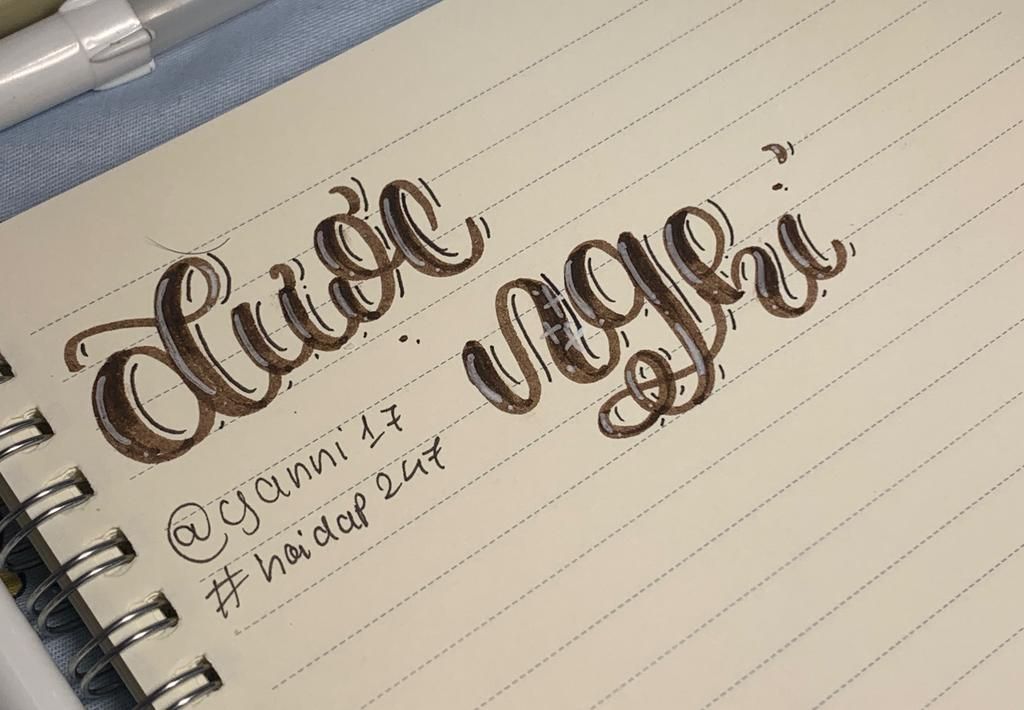 được nghỉ
@ganni 17
#hoidap 247